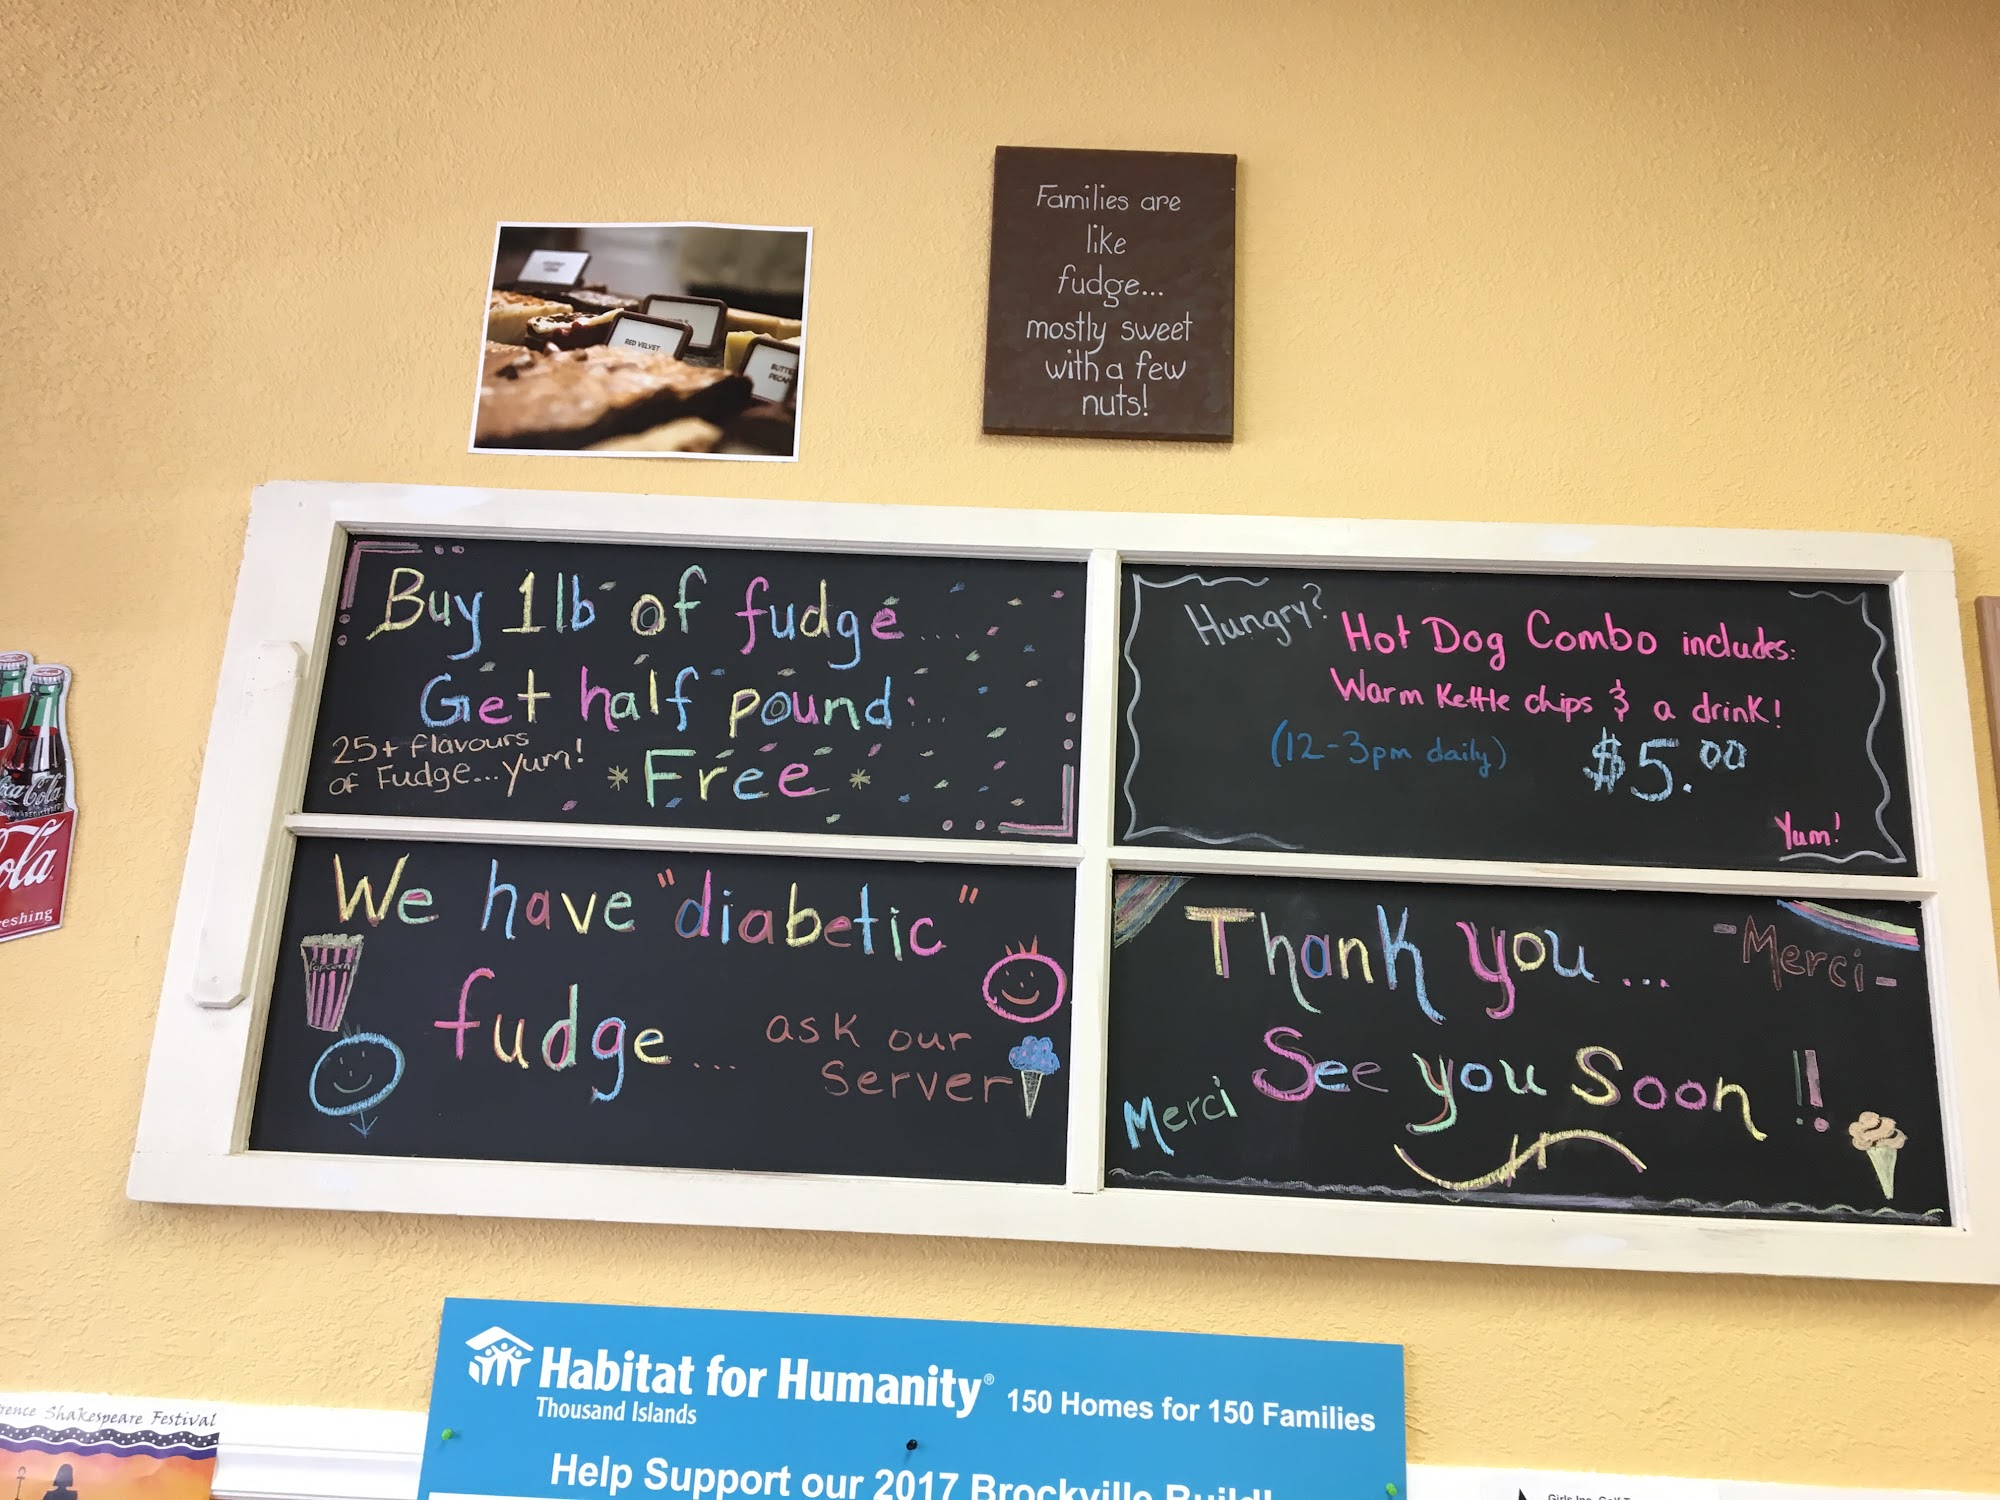 Families are
like
fudge...
mostly sweet
with a few
nuts!
RED VELVET
Buy 1lb of fudge....
Get half pound...
25+ flavours
of Fudge...yum!
* Free *
Hungry?
Hot Dog Combo includes:
Warm Kettle chips & a drink!
(12-3pm daily)
$5.00
Yum!
We have "diabetic"
fudge...
ask our
Server
popcorn
Thank you...
-Merci-
See you Soon!!
Merci
Coca-Cola
Habitat for Humanity®
Thousand Islands
150 Homes for 150 Families
Help Support our 2017 Brockville Build!
Shakespeare Festival